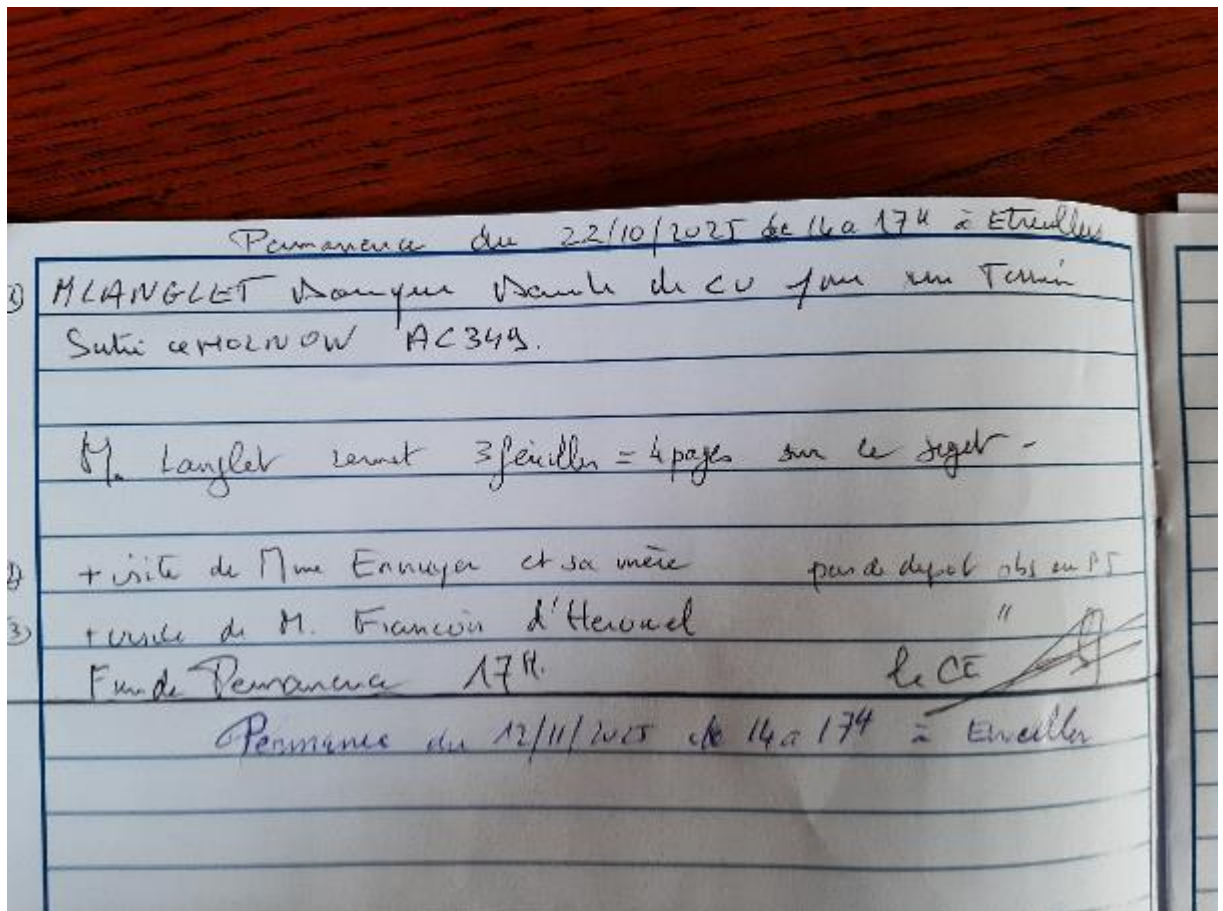 Permanence du 22/10/2025 de 14 a 17H à Etreillers
M LANGLET de CU pour un Terrain
AC349.
M. Langlet remet 3 feuilles = 4 pages sur ce sujet -
2) + visite de Mme Ennuyer et sa mère pas de depot obs ou PJ
3) + visite de M. Francois d'Herouel "
Fin de Permanence 17H. le CE
Permanence du 12/11/2025 de 14 a 17H à Etreillers